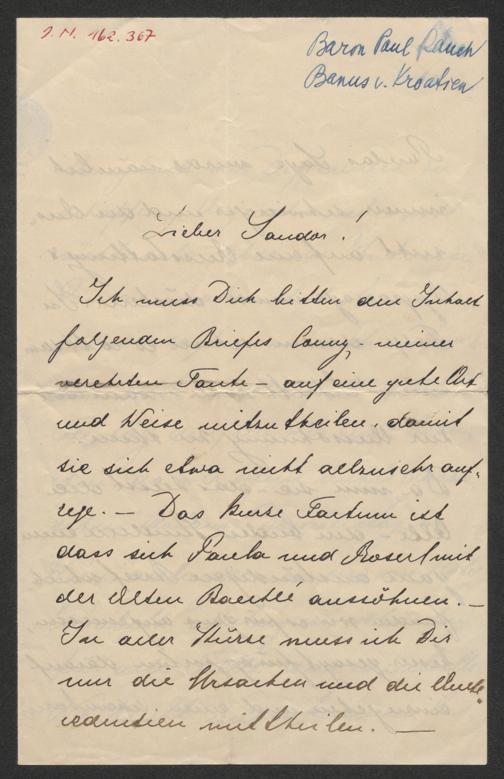 J.N. 162.367
Baron Paul Rauch
Banus v. Kroatien
Lieber Sandor!
Ich muss Dich bitten den Inhalt
folgenden Briefes Conny, meiner
verehrten Tante – auf eine gute Art
und Weise mitzutheilen, damit
sie sich etwa nicht allzusehr auf-
rege. – Das kurze Factum ist
dass sich Paula und Josef mit
der Alten aussöhnen. –
In aller Kürze muss ich Dir
nur die Ursachen und die
mittheilen. –